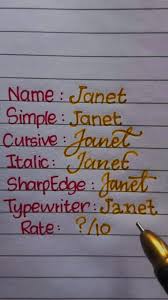 Name : Janet
Simple : Janet
Cursive : Janet
Italic : Janet
SharpEdge : Janet
Typewriter : Janet
Rate : ?/10